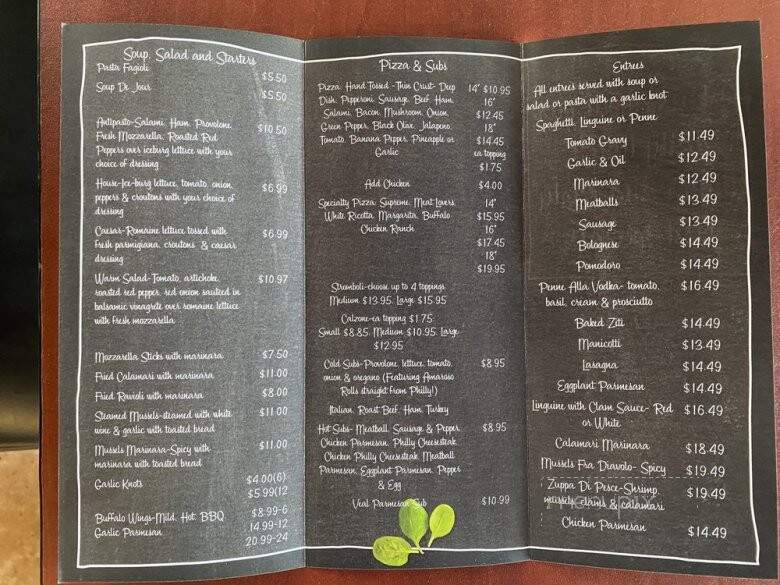 Soup, Salad and Starters
Pasta Fagioli $5.50
Soup De Jour $5.50
Antipasto-Salami, Ham, Provolone, $10.50
Fresh Mozzarella, Roasted Red
Peppers over iceburg lettuce with your
choice of dressing
House-Ice-burg lettuce, tomato, onion, $6.99
peppers & croutons with your choice of
dressing
Caesar-Romaine lettuce tossed with $6.99
fresh parmigiana, croutons & caesar
dressing
Warm Salad-Tomato, artichoke, $10.97
roasted red pepper, red onion sauteed in
balsamic vinagrete over romaine lettuce
with fresh mozzarella
Mozzarella Sticks with marinara $7.50
Fried Calamari with marinara $11.00
Fried Ravioli with marinara $8.00
Steamed Mussels-steamed with white $11.00
wine & garlic with toasted bread
Mussels Marinara-Spicy with $11.00
marinara with toasted bread
Garlic Knots $4.00(6)
$5.99(12
Buffalo Wings-Mild, Hot, BBQ, $8.99-6
Garlic Parmesan 14.99-12
20.99-24
Pizza & Subs
Pizza, Hand Tossed -Thin Crust- Deep 14" $10.95
Dish, Pepperoni, Sausage, Beef, Ham, 16"
Salami, Bacon, Mushroom, Onion, $12.45
Green Pepper, Black Olive, Jalapeno, 18"
Tomato, Banana Pepper, Pineapple or $14.45
Garlic ea topping
$1.75
Add Chicken $4.00
Specialty Pizza: Supreme, Meat Lovers, 14"
White Ricotta, Margarita, Buffalo $15.95
Chicken Ranch 16"
$17.45
18"
$19.95
Stromboli-choose up to 4 toppings
Medium $13.95, Large $15.95
Calzone-ea topping $1.75
Small $8.85, Medium $10.95, Large
$12.95
Cold Subs-Provolone, lettuce, tomato, $8.95
onion & oregano (Featuring Amoroso
Rolls straight from Philly!)
Italian, Roast Beef, Ham, Turkey
Hot Subs- Meatball, Sausage & Pepper, $8.95
Chicken Parmesan, Philly Cheesesteak,
Chicken Philly Cheesesteak, Meatball
Parmesan, Eggplant Parmesan, Pepper
& Egg
Veal Parmesan Sub $10.99
Entrees
All entrees served with soup or
salad or pasta with a garlic knot
Spaghetti, Linguine or Penne
Tomato Gravy $11.49
Garlic & Oil $12.49
Marinara $12.49
Meatballs $13.49
Sausage $13.49
Bolognese $14.49
Pomodoro $14.49
Penne Alla Vodka- tomato, $16.49
basil, cream & prosciutto
Baked Ziti $14.49
Manicotti $13.49
Lasagna $14.49
Eggplant Parmesan $14.49
Linguine with Clam Sauce- Red $16.49
or White
Calamari Marinara $18.49
Mussels Fra Diavolo- Spicy $19.49
Zuppa Di Pesce-Shrimp, $19.49
mussels, clams & calamari
Chicken Parmesan $14.49